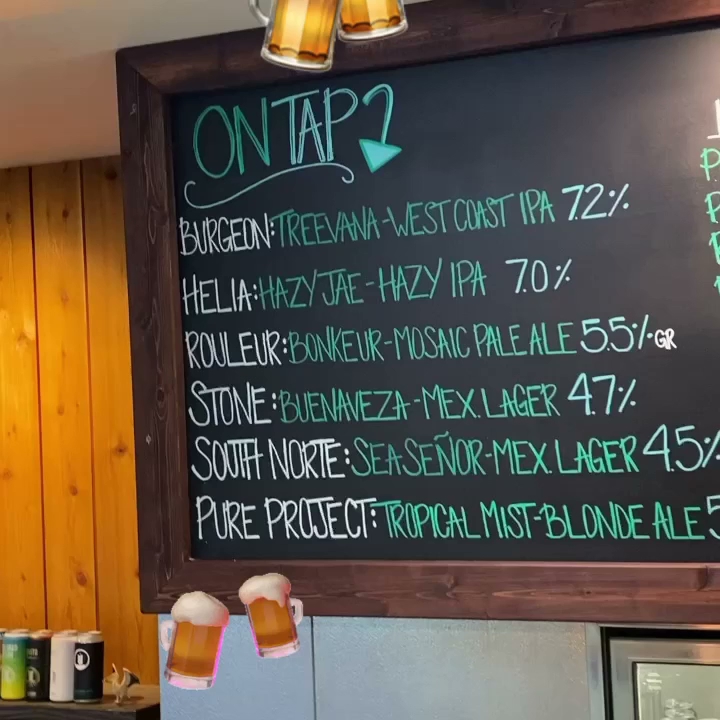 ON TAP
BURGEON: TREEVANA-WEST COAST IPA 7.2%
HELIA: HAZY JAE-HAZY IPA 7.0%
ROULEUR: BONKEUR-MOSAIC PALE ALE 5.5% GR
STONE: BUENAVEZA-MEX. LAGER 4.7%
SOUTH NORTE: SEA SEÑOR-MEX. LAGER 4.5%
PURE PROJECT: TROPICAL MIST-BLONDE ALE 5